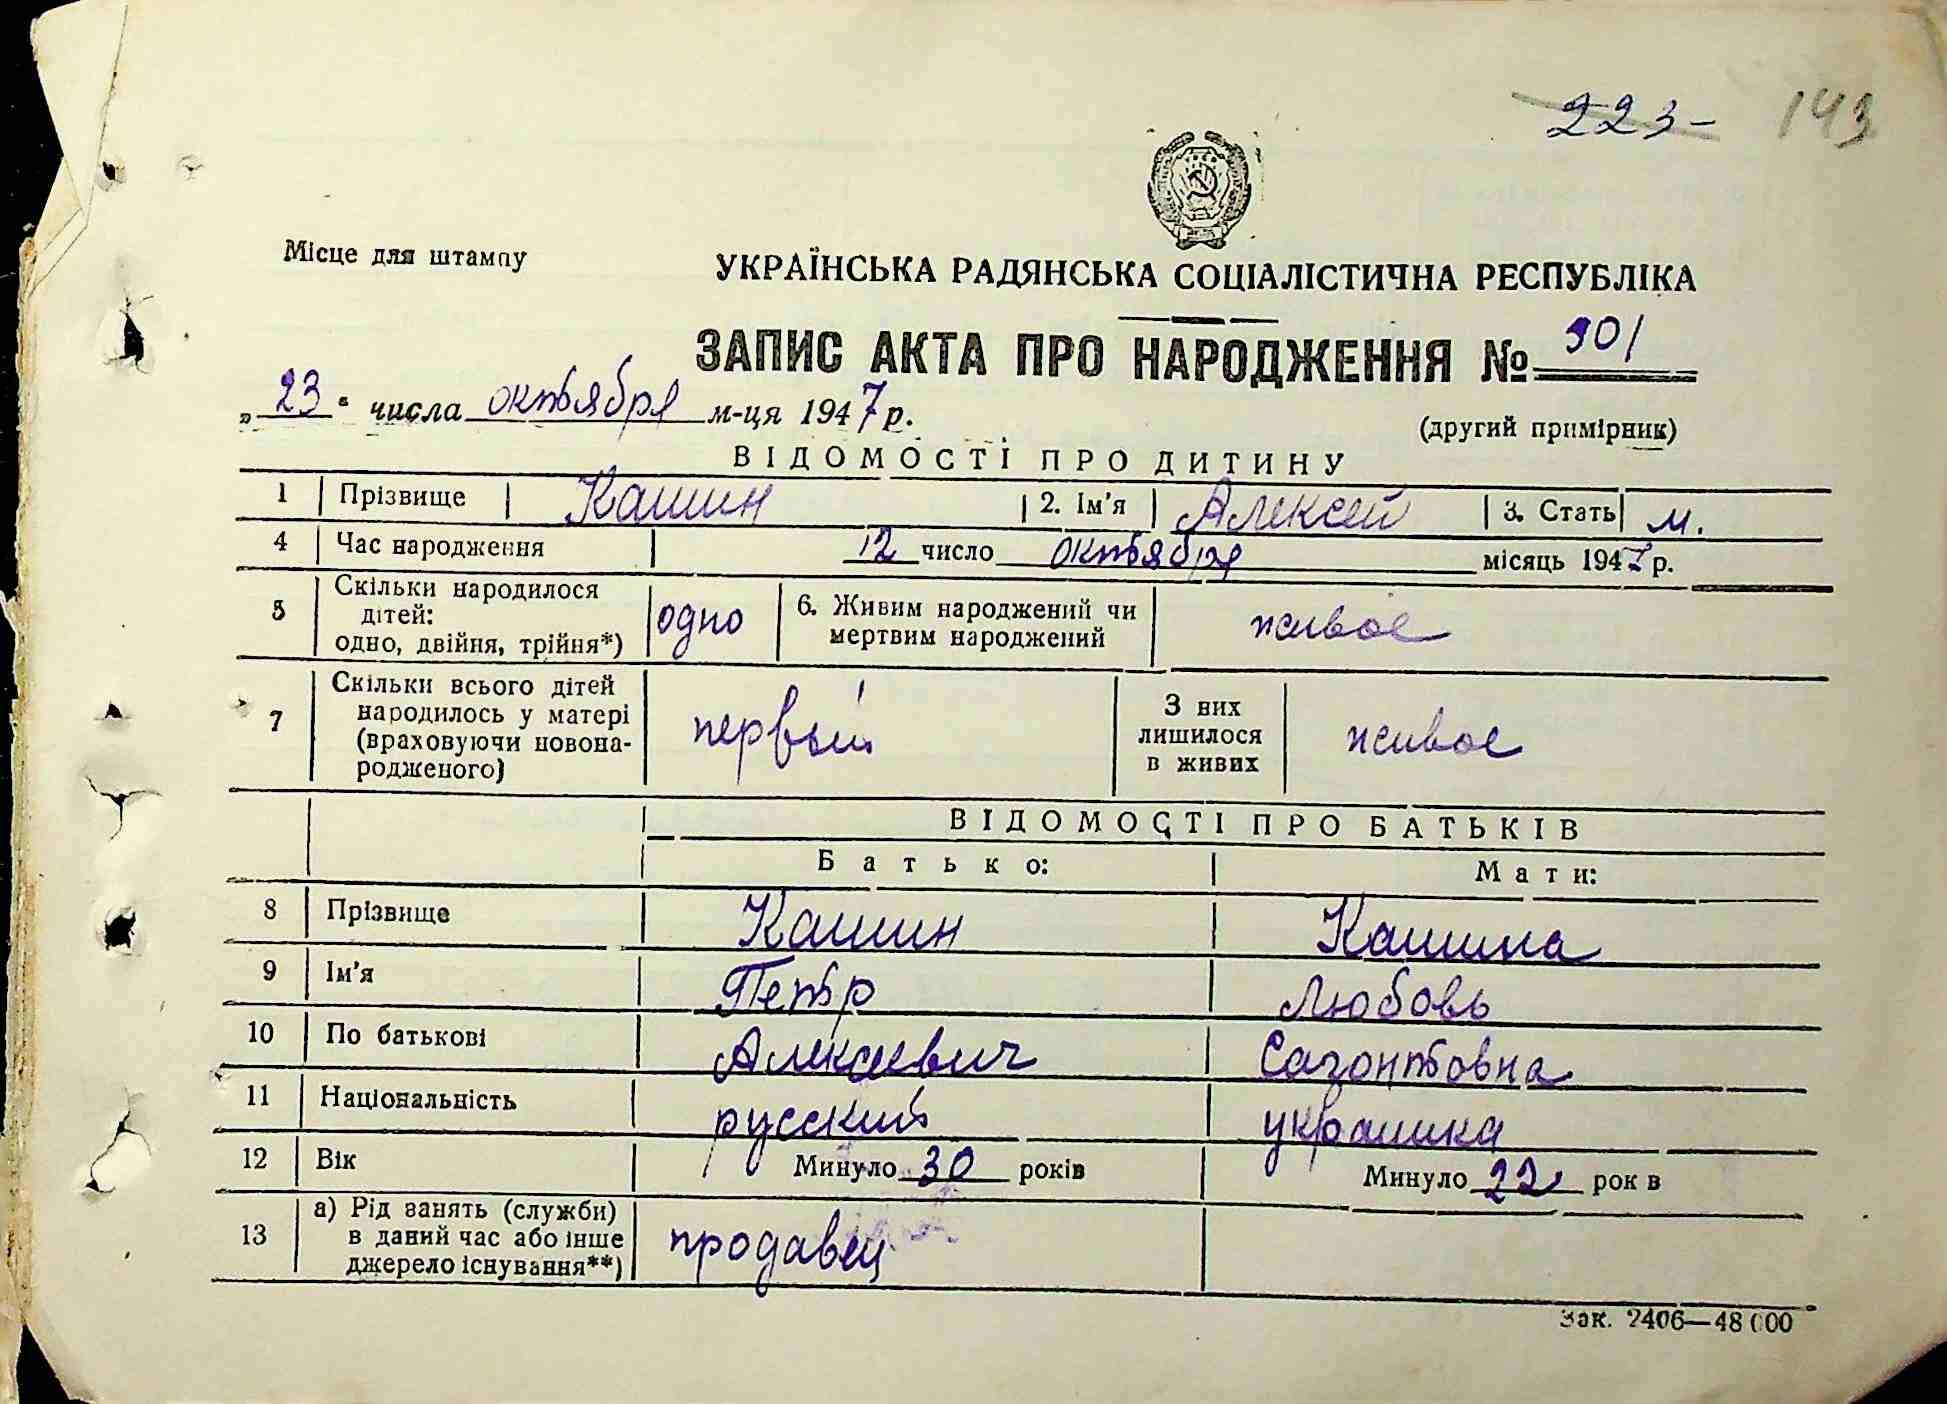 223- 143
Місце для штампу
УКРАЇНСЬКА РАДЯНСЬКА СОЦІАЛІСТИЧНА РЕСПУБЛІКА
ЗАПИС АКТА ПРО НАРОДЖЕННЯ № 901
„23“ числа октября м-ця 1947 р.
(другий примірник)
ВІДОМОСТІ ПРО ДИТИНУ
1 Прізвище Кашин 2. Ім'я Алексей 3. Стать м.
4 Час народження 12 число октября місяць 1947 р.
5 Скільки народилося
дітей:
одно, двійня, трійня*) одно
6. Живим народжений чи
мертвим народжений живое
7 Скільки всього дітей
народилось у матері
(враховуючи новона-
родженого) первый
З них
лишилося
в живих живое
ВІДОМОСТІ ПРО БАТЬКІВ
Батько: Мати:
8 Прізвище Кашин Кашина
9 Ім'я Петр Любовь
10 По батькові Алексеевич Сазонтовна
11 Національність русский украинка
12 Вік Минуло 30 років Минуло 22 рок в
13 а) Рід занять (служби)
в даний час або інше
джерело існування**) продавец
Зак. 2406—48 000